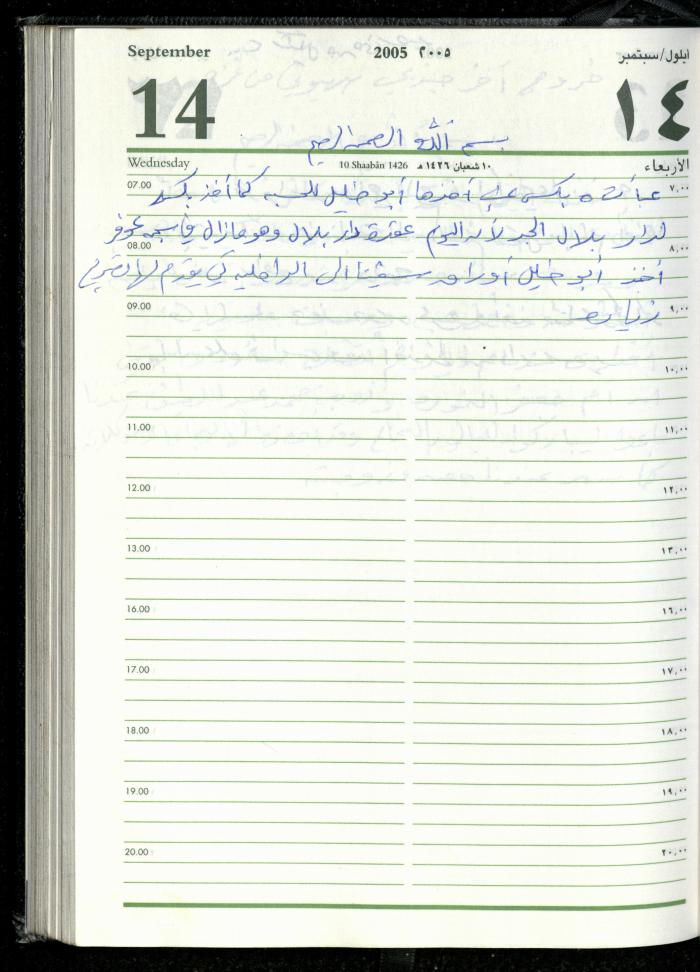 September 2005 ٢٠٠٥ ايلول/سبتمبر
14 ١٤
بسم الله الرحمن الرحيم
Wednesday 10 Shaabân 1426 ١٠ شعبان ١٤٢٦ هـ الأربعاء
07.00 ٧,٠٠
عبأت ٥ بكس عنب أخذها أبو خليل للحسبه كما أخذ بكسه
لدار بلال الجد لأنه اليوم عقدة دار بلال وهو مازال
08.00 ٨,٠٠
أخذ أبو خليل أوراق الى الداخليه كي يقدم لها تصريح
09.00 ٩,٠٠
زياره
10.00 ١٠,٠٠
11.00 ١١,٠٠
12.00 ١٢,٠٠
13.00 ١٣,٠٠
16.00 ١٦,٠٠
17.00 ١٧,٠٠
18.00 ١٨,٠٠
19.00 ١٩,٠٠
20.00 ٢٠,٠٠